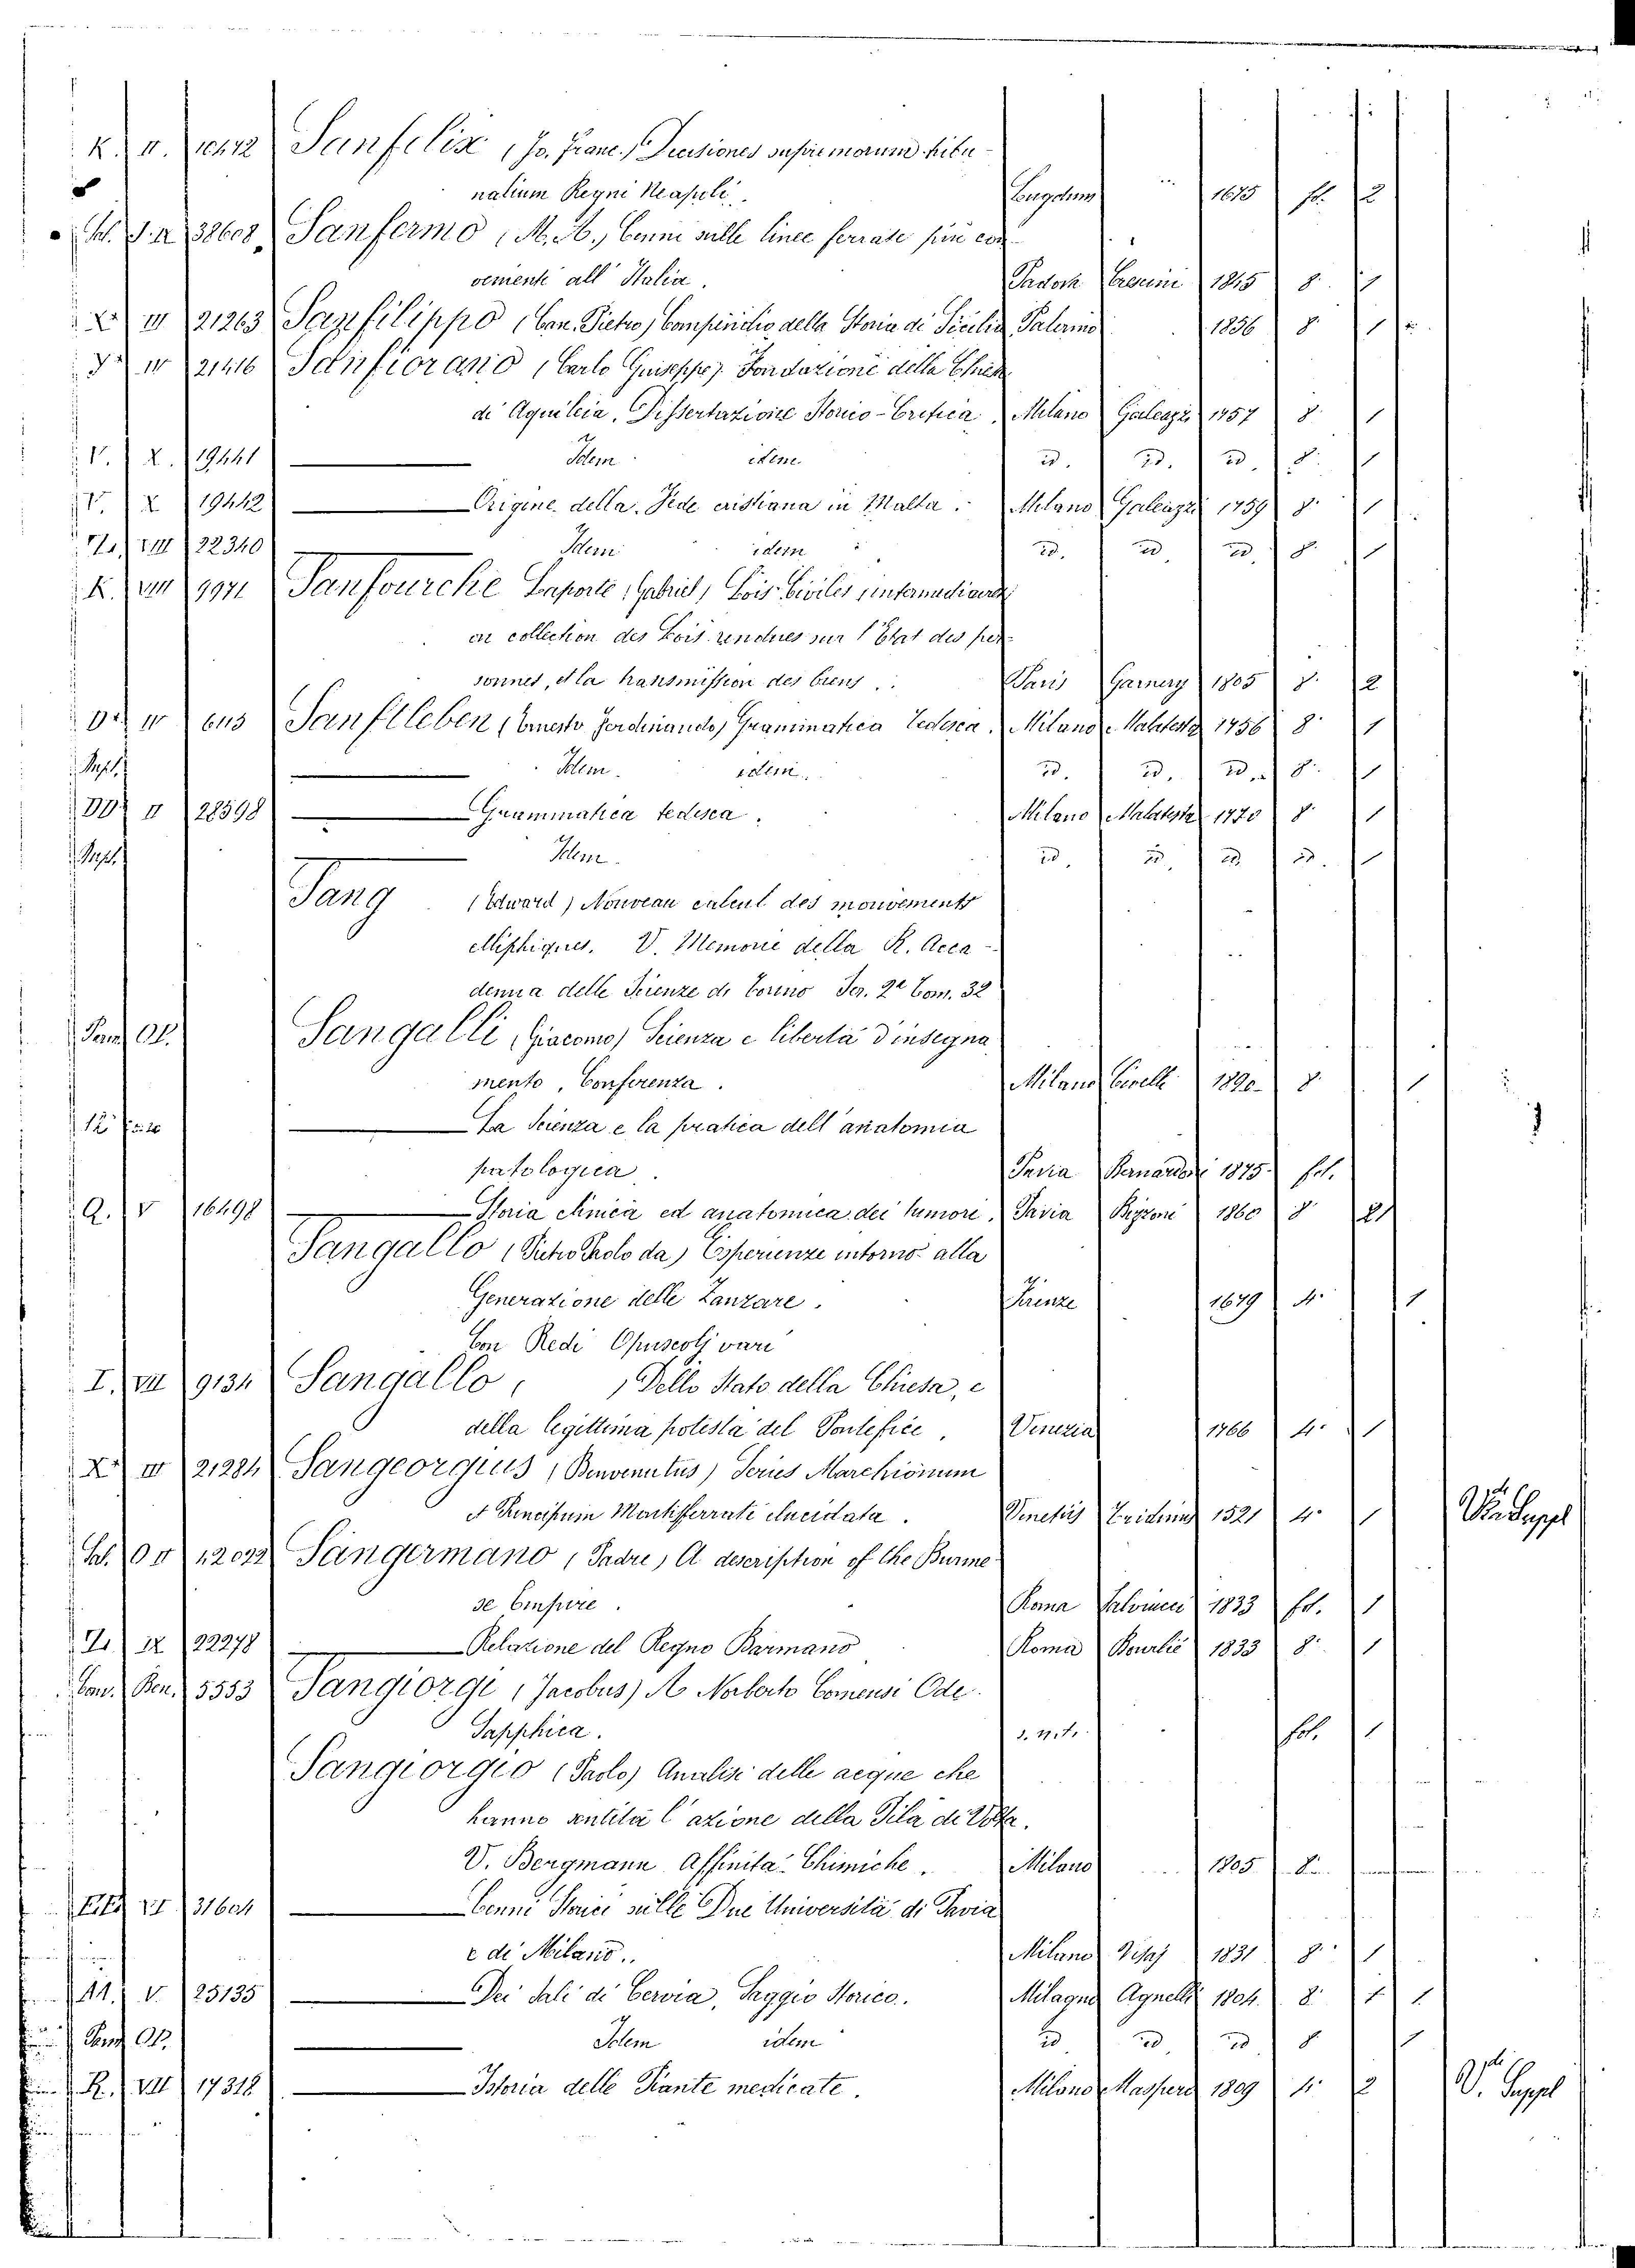 K. II. Sanfelix, (Jo. Franc.) Decisiones supremorum tribu-
nalium Regni Neapoli. Lugdum 1675 fol. 2
38608 Sanfermo, (M. A.) Cenni sulle linee ferrate più con-
veniente all' Italia. Padova 1845 8. 1
X. III 21263 Sanfilippo (Can. Pietro) Compendio della Storia di Sicilia Palermo 1836 8. 1
IV 21416 Sanfiorano (Carlo Guiseppe) Fondazione della Chiesa
di Aquileia, Dissertazione Storico-Critica. Milano Galeazzi 1757 8. 1
V. X. 19441 Idem idem id. id. id. 8. 1
V. X 19442 Origine della Fede cristiana in Malta. Milano Galeazzi 1759 8. 1
VIII 22340 Idem idem id. id id. 8. 1
K. VIII 9971 Sanfourche Laporte (Gabriel) Lois Civiles intermediaires
ou collection des Lois rendues sur l'Etat des per-
sonnes, et la transmission des biens. Paris Garnery 1805 8. 2
IV 6115 Sanftleben (Ernesto Ferdinando) Grammatica Tedesca. Milano Malatesta 1756 8. 1
Suppl. Idem. idem. id. id. id. 8. 1
DD. II 28598 Grammatica tedesca. Milano Malatesta 1770 8. 1
Suppl. Idem. id. id. id. id. 1
Sang (Edward) Nouveau calcul des mouvements
elliptiques. V. Memorie della R. Acca-
demia delle Scienze di Torino Ser. 2a Tom. 32
Sangalli (Giacomo) Scienza e libertà d'insegna
mento, Conferenza. Milano Civelli 1890. 8. 1
La Scienza e la pratica dell'anatomia
patologica. Pavia Bernardoni 1875. fol.
Q. V 16498 Storia clinica ed anatomica dei tumori. Pavia Bizzoni 1860 8. 2
Sangallo (Pietro Paolo da) Esperienze intorno alla
Generazione delle Zanzare. Firenze 1679 4. 1
Con Redi Opuscoli vari
I. VII 9134 Sangallo, ) Dello Stato della Chiesa, e
della legittima potestà del Pontefice. Venezia 1766 4. 1
X. III 21284 Sangeorgius (Benvenutus) Series Marchionum
et Principum Montisferrati elucidata. Venetiis Tridinum 1521 4. 1 Vd. Suppl
12022 Sangermano (Padre) A description of the Burme-
se Empire. Roma Salviucci 1833 fol. 1
IX 22278 Relazione del Regno Barmano Roma Bourlié 1833 8. 1
Can. Ben. 5553 Sangiorgi (Jacobus) A Norberto Comensi Ode
Sapphica. s. n. t. fol. 1
Sangiorgio (Paolo) Analisi delle acque che
hanno sentita l'azione della Pila di Volta.
V. Bergmann Affinità Chimiche. Milano 1805 8.
VI 31604 Cenni Storici sulle Due Università di Pavia
e di Milano. Milano Visaj 1831 8. 1
V. 25135 Dei Sali di Cervia, Saggio Storico. Milano Agnelli 1804. 8. 1
Idem idem id id id 8 1
R. VII 17318 Istoria delle Piante medicate. Milano Maspero 1809 4. 2 V. Suppl